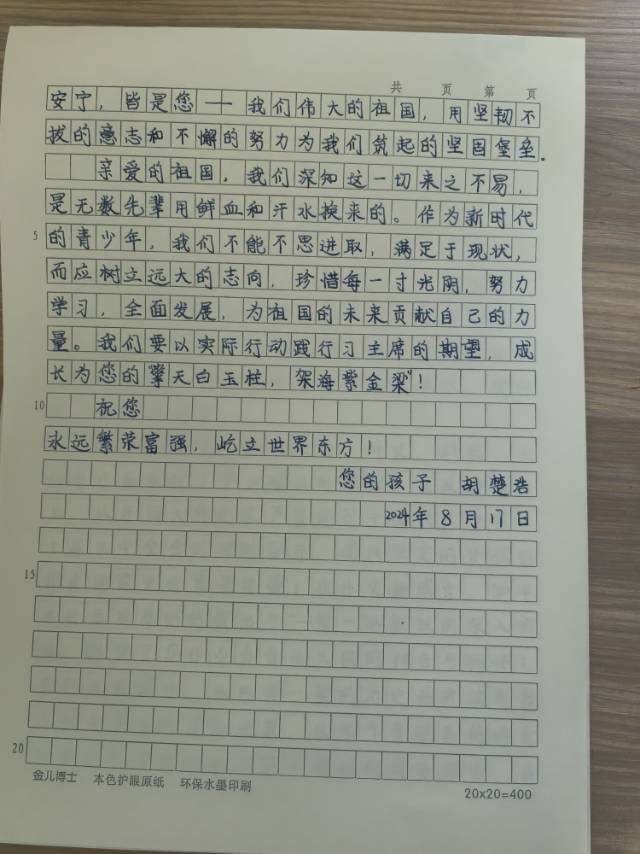 共 页 第 页
安宁，皆是您——我们伟大的祖国，用坚韧不
拔的意志和不懈的努力为我们筑起的坚固堡垒.
亲爱的祖国，我们深知这一切来之不易，
是无数先辈用鲜血和汗水换来的。作为新时代
5 的青少年，我们不能不思进取，满足于现状，
而应树立远大的志向，珍惜每一寸光阴，努力
学习，全面发展，为祖国的未来贡献自己的力
量。我们要以实际行动践行习主席的期望，成
长为您的擎天白玉柱，架海紫金梁"！
10 祝您
永远繁荣富强，屹立世界东方！
您的孩子 胡楚浩
2024年8月17日
15
20
金儿博士 本色护眼原纸 环保水墨印刷
20x20=400